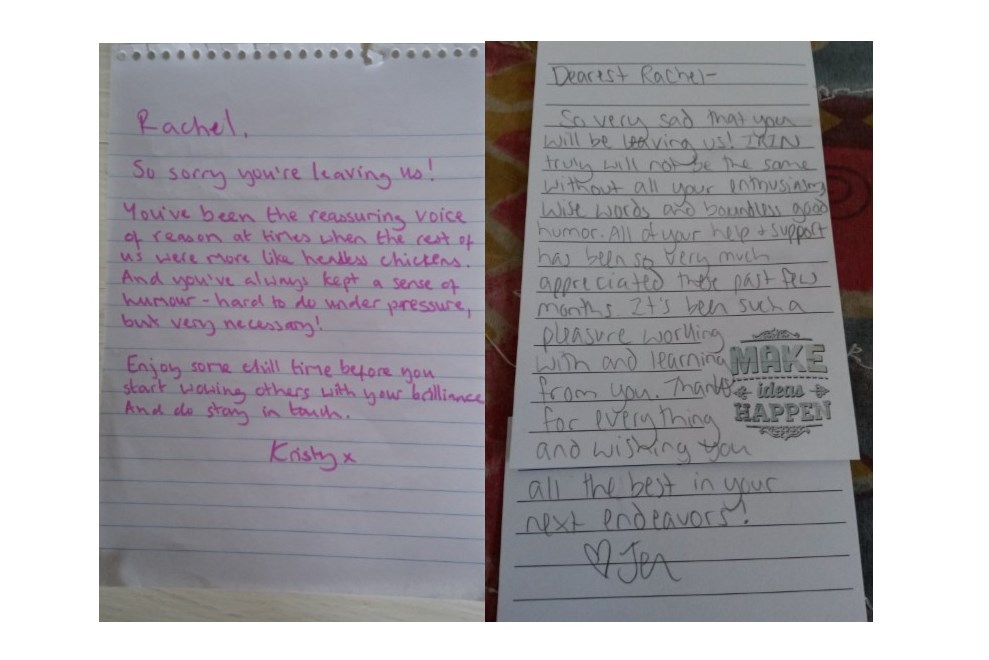 Rachel,
So sorry you're leaving us!
You've been the reassuring voice
of reason at times when the rest of
us were more like headless chickens.
And you've always kept a sense of
humour - hard to do under pressure,
but very necessary!
Enjoy some chill time before you
start wowing others with your brilliance
And do stay in touch.
Kristy x
Dearest Rachel-
So very sad that you
will be leaving us! IRIN
truly will not be the same
without all your enthusiasm,
wise words and boundless good
humor. All of your help + support
has been so very much
appreciated these past few
months. It's been such a
pleasure working
with and learning
from you. Thanks
for everything
and wishing you
all the best in your
next endeavors!
♡ Jen
MAKE
ideas
HAPPEN